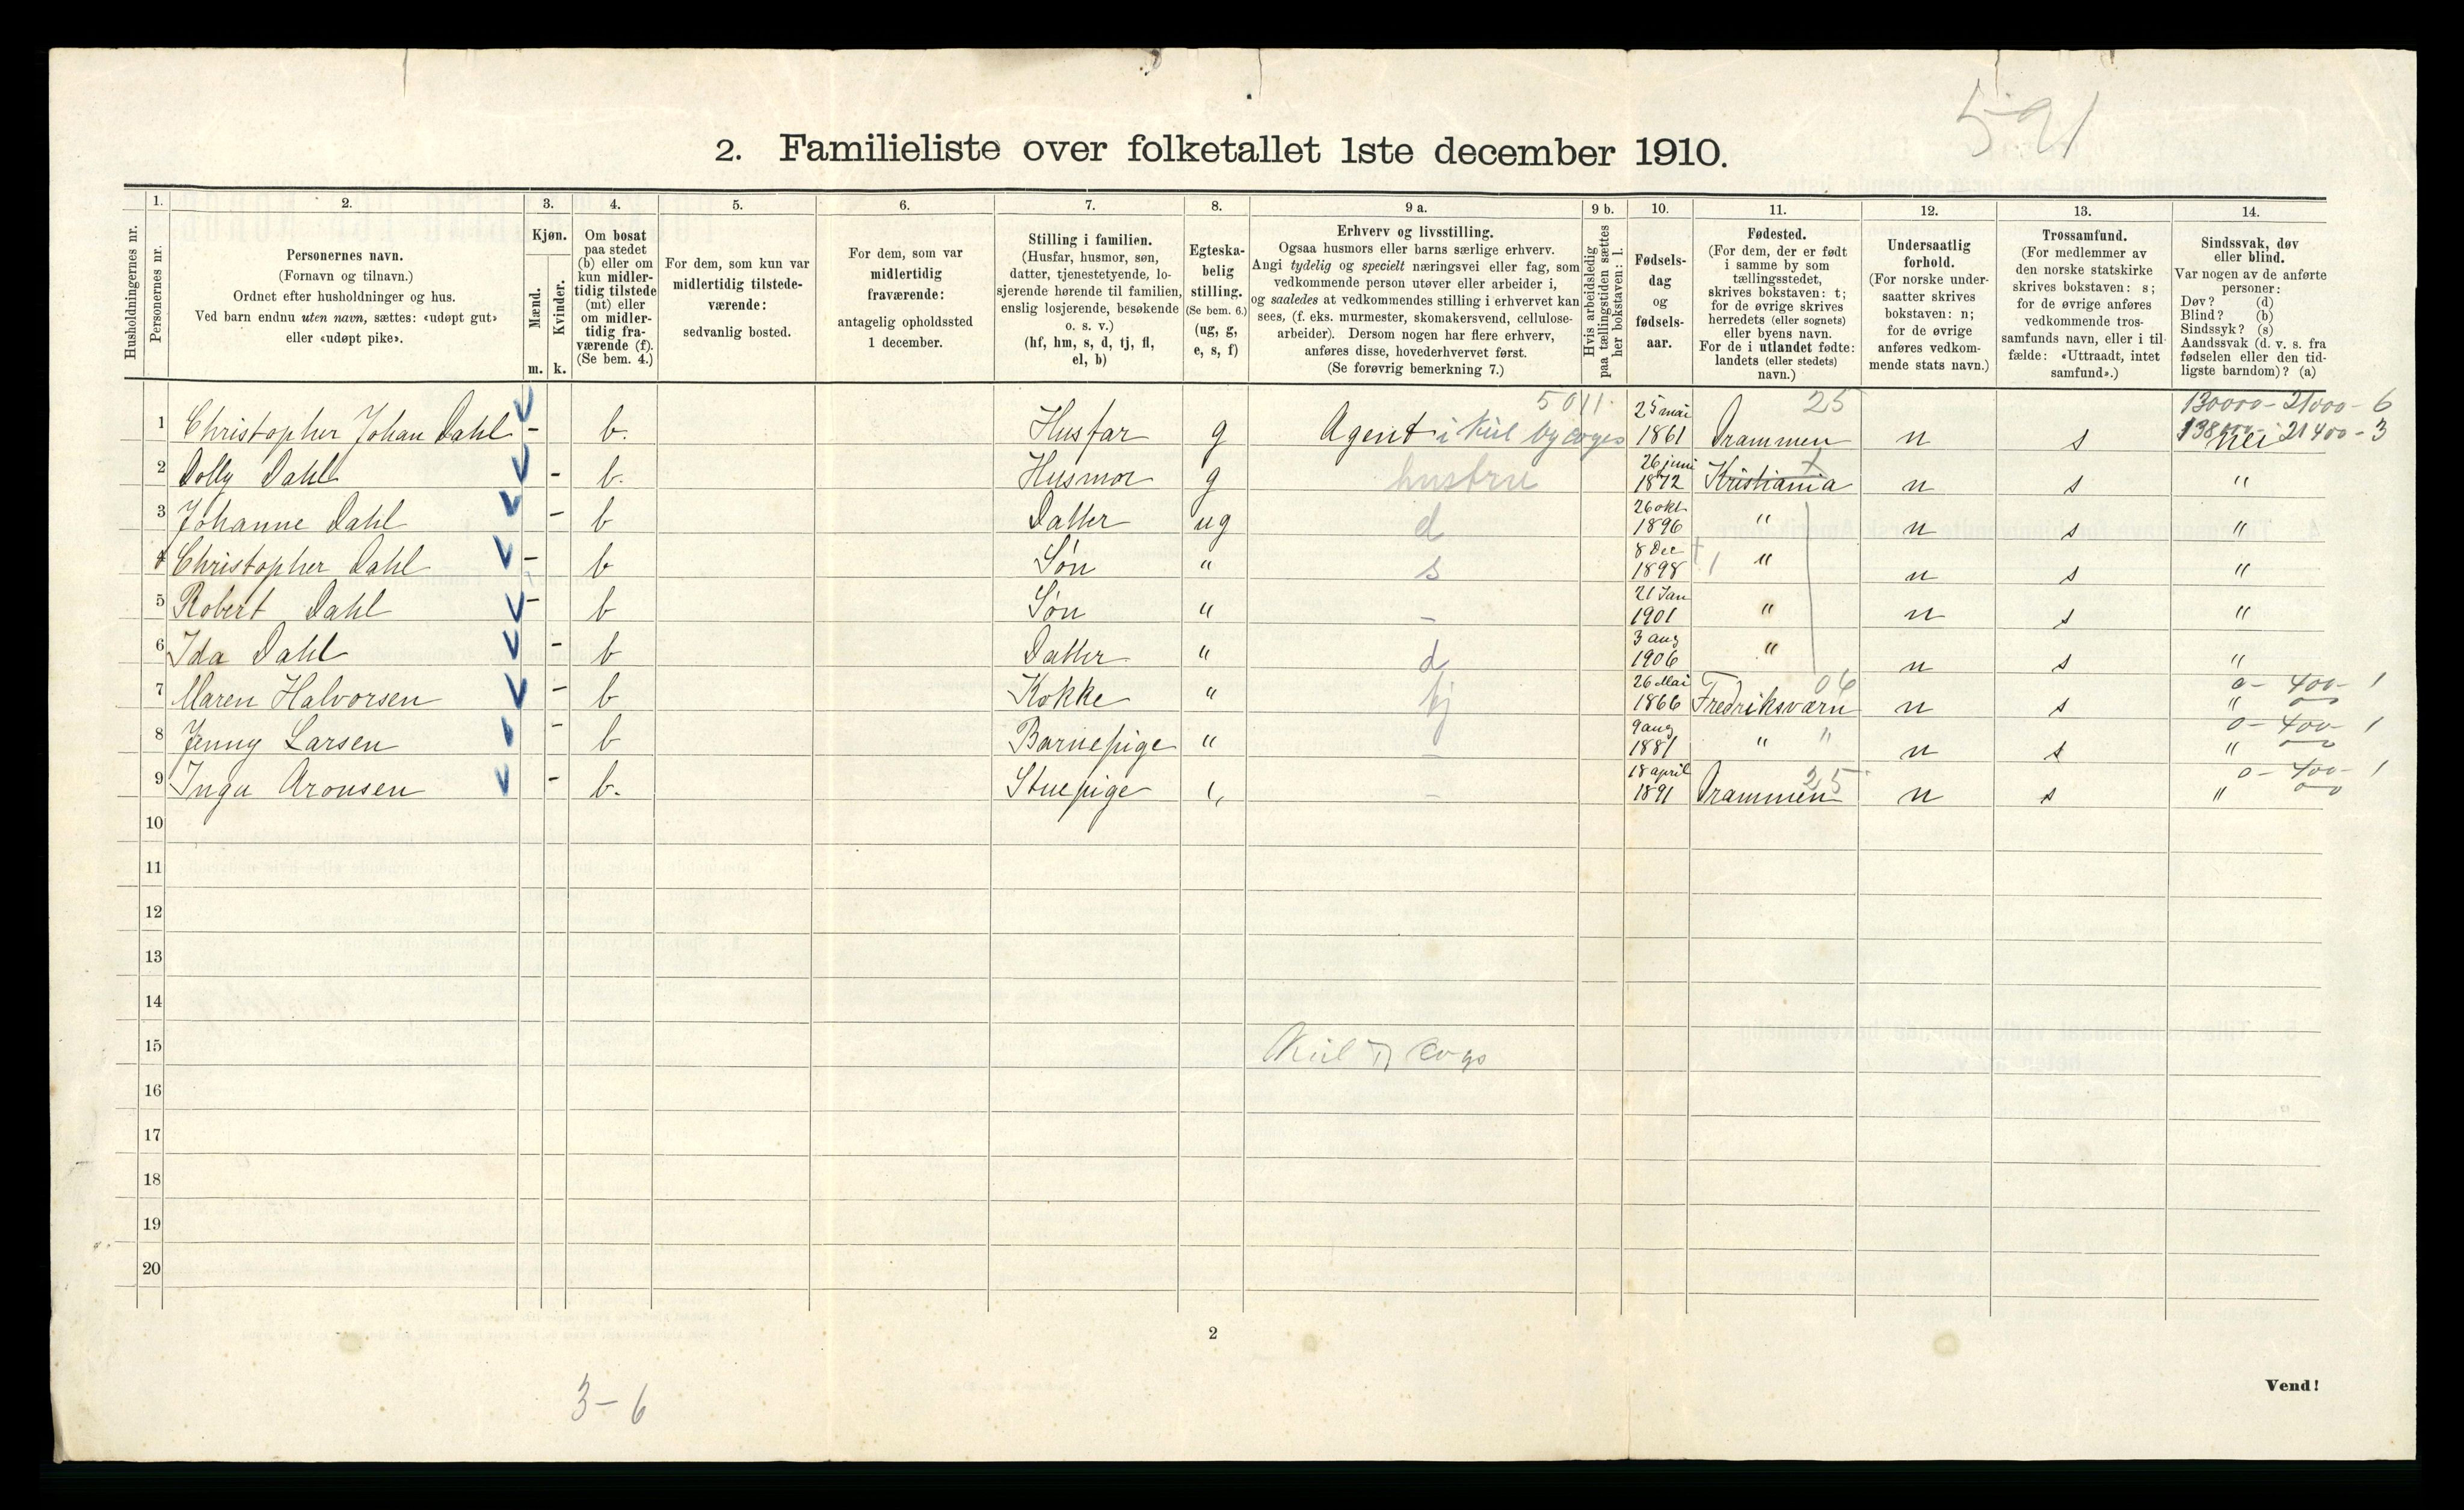 591
2. Familieliste over folketallet 1ste december 1910.
Husholdningernes nr.
1. Personernes nr.
2. Personernes navn.
(Fornavn og tilnavn.)
Ordnet efter husholdninger og hus.
Ved barn endnu uten navn, sættes: «udøpt gut»
eller «udøpt pike».
3. Kjøn.
Mænd. Kvinder.
m. k.
4. Om bosat
paa stedet
(b) eller om
kun midler-
tidig tilstede
(mt) eller
om midler-
tidig fra-
værende (f).
(Se bem. 4.)
5. For dem, som kun var
midlertidig tilstede-
værende:
sedvanlig bosted.
6. For dem, som var
midlertidig
fraværende:
antagelig opholdssted
1 december.
7. Stilling i familien.
(Husfar, husmor, søn,
datter, tjenestetyende, lo-
sjerende hørende til familien,
enslig losjerende, besøkende
o. s. v.)
(hf, hm, s, d, tj, fl,
el, b)
8. Egteska-
belig
stilling.
(Se bem. 6.)
(ug, g,
e, s, f)
9 a. Erhverv og livsstilling.
Ogsaa husmors eller barns særlige erhverv.
Angi tydelig og specielt næringsvei eller fag, som
vedkommende person utøver eller arbeider i,
og saaledes at vedkommendes stilling i erhvervet kan
sees, (f. eks. murmester, skomakersvend, cellulose-
arbeider). Dersom nogen har flere erhverv,
anføres disse, hovederhvervet først.
(Se forøvrig bemerkning 7.)
9 b. Hvis arbeidsledig
paa tællingstiden sættes
her bokstaven: l.
10. Fødsels-
dag
og
fødsels-
aar.
11. Fødested.
(For dem, der er født
i samme by som
tællingsstedet,
skrives bokstaven: t;
for de øvrige skrives
herredets (eller sognets)
eller byens navn.
For de i utlandet fødte:
landets (eller stedets)
navn.)
12. Undersaatlig
forhold.
(For norske under-
saatter skrives
bokstaven: n;
for de øvrige
anføres vedkom-
mende stats navn.)
13. Trossamfund.
(For medlemmer av
den norske statskirke
skrives bokstaven: s;
for de øvrige anføres
vedkommende tros-
samfunds navn, eller i til-
fælde: «Uttraadt, intet
samfund».)
14. Sindssvak, døv
eller blind.
Var nogen av de anførte
personer:
Døv? (d)
Blind? (b)
Sindssyk? (s)
Aandssvak (d. v. s. fra
fødselen eller den tid-
ligste barndom)? (a)
5011. 25 130000 - 21000 - 6
1 Christopher Johan Dahl - b. Husfar g Agent i Kul og coges 25 mai 1861 Drammen n s nei 21400 - 3
2 Dolly Dahl - b. Husmor g hustru 26 juni 1872 Kristiania t n s "
3 Johanne Dahl - b Datter ug d 26 okt 1896 " n s "
4 Christopher Dahl - b Søn " s 8 Dec 1898 " n s "
5 Robert Dahl - b Søn " - 21 Jan 1901 " n s "
6 Ida Dahl - b Datter " d 3 aug 1906 " n s "
7 Maren Halvorsen - b Kokke " tj 26 Mai 1866 Fredriksværn 06 n s " 0 - 400 - 1
8 Jenny Larsen - b Barnepige " - 9 aug 1881 " " n s " 0 - 400 - 1
9 Inga Aronsen - b. Stuepige " - 18 april 1891 Drammen 25 n s " 0 - 400 - 1
10
11
12
13
14
15 Kul og Cogs
16
17
18
19
20
2
Vend!
3-6